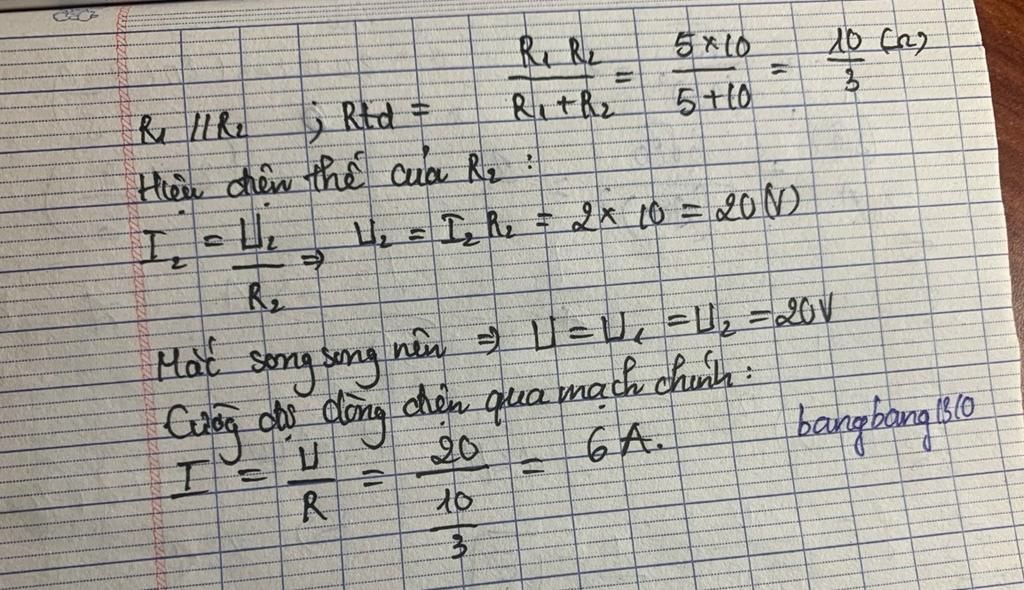 R₁ // R₂ ; Rtđ = \frac{R₁ R₂}{R₁ + R₂} = \frac{5 × 10}{5 + 10} = \frac{10}{3} (Ω)
Hiệu điện thế của R₂ :
I₂ = \frac{U₂}{R₂} ⇒ U₂ = I₂ R₂ = 2 × 10 = 20 (V)
Mắc song song nên ⇒ U = U₁ = U₂ = 20V
Cường độ dòng điện qua mạch chính :
I = \frac{U}{R} = \frac{20}{\frac{10}{3}} = 6 A.
bangbang1310